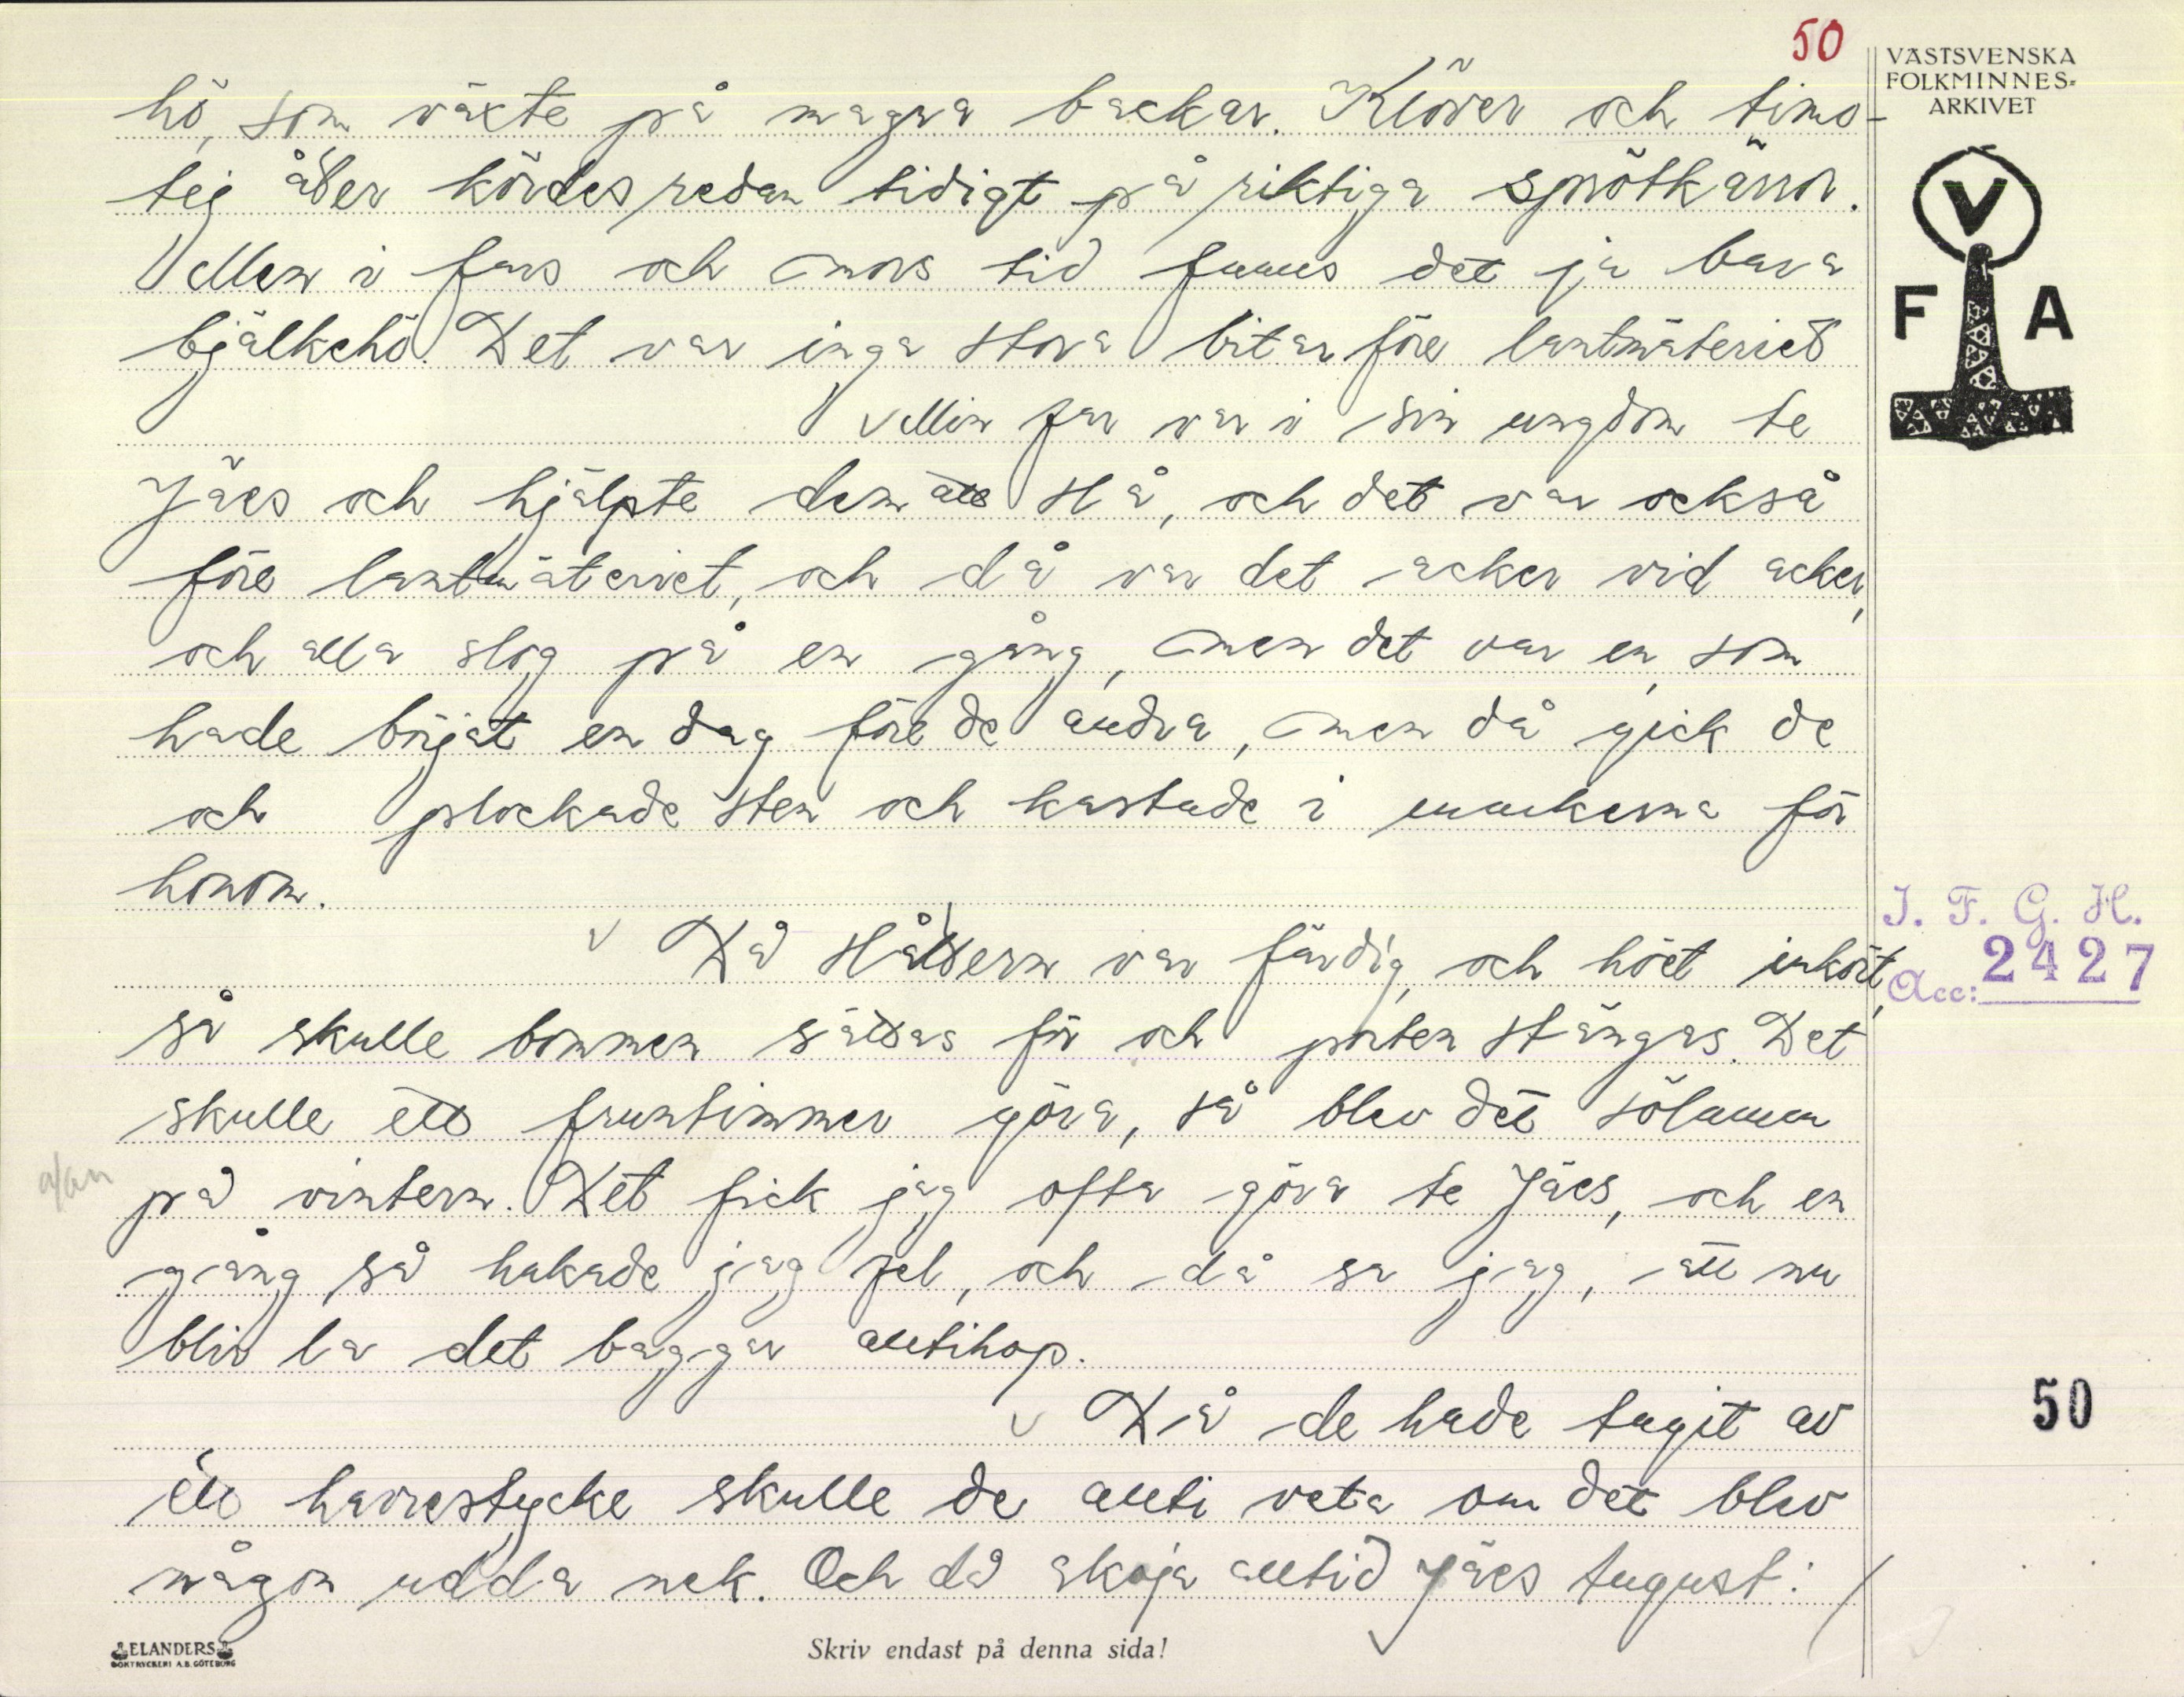 50
VÄSTSVENSKA
FOLKMINNES-
ARKIVET
V
F A
hö, som växte på magra backar. Klöver och timo-
tej åter kördes redan tidigt på riktiga sprötkärror.
Men i fars och mors tid fanns det ja bara
bjälkehö. Det var inga stora bitar före lantmäteriet
Min far var i sin ungdom te
Jäes och hjälpte dem att slå, och det var också
före lantmäteriet, och då var det acker vid acker,
och alla slog på en gång, men det var en, som
hade börjat en dag före de andra, men då gick de
och plockade sten och kastade i markerna för
honom.
Då slåttern var färdig, och höet inkört,
så skulle bommen sättas för och porten stängas. Det
skulle ett fruntimmer göra, så blev det sölamm
på vintern. Det fick jag ofta göra te Jäes, och en
gång så hakade jag fel, och då sa jag, att nu
blir la det baggar alltihop.
Då de hade tagit av
ett havrestycke skulle de allti veta om det blev
någon udda nek. Och då skoja alltid Jäes August:
I. F. G. H.
Acc: 2427
50
ELANDERS
BOKTRYCKERI A.B. GÖTEBORG
Skriv endast på denna sida!